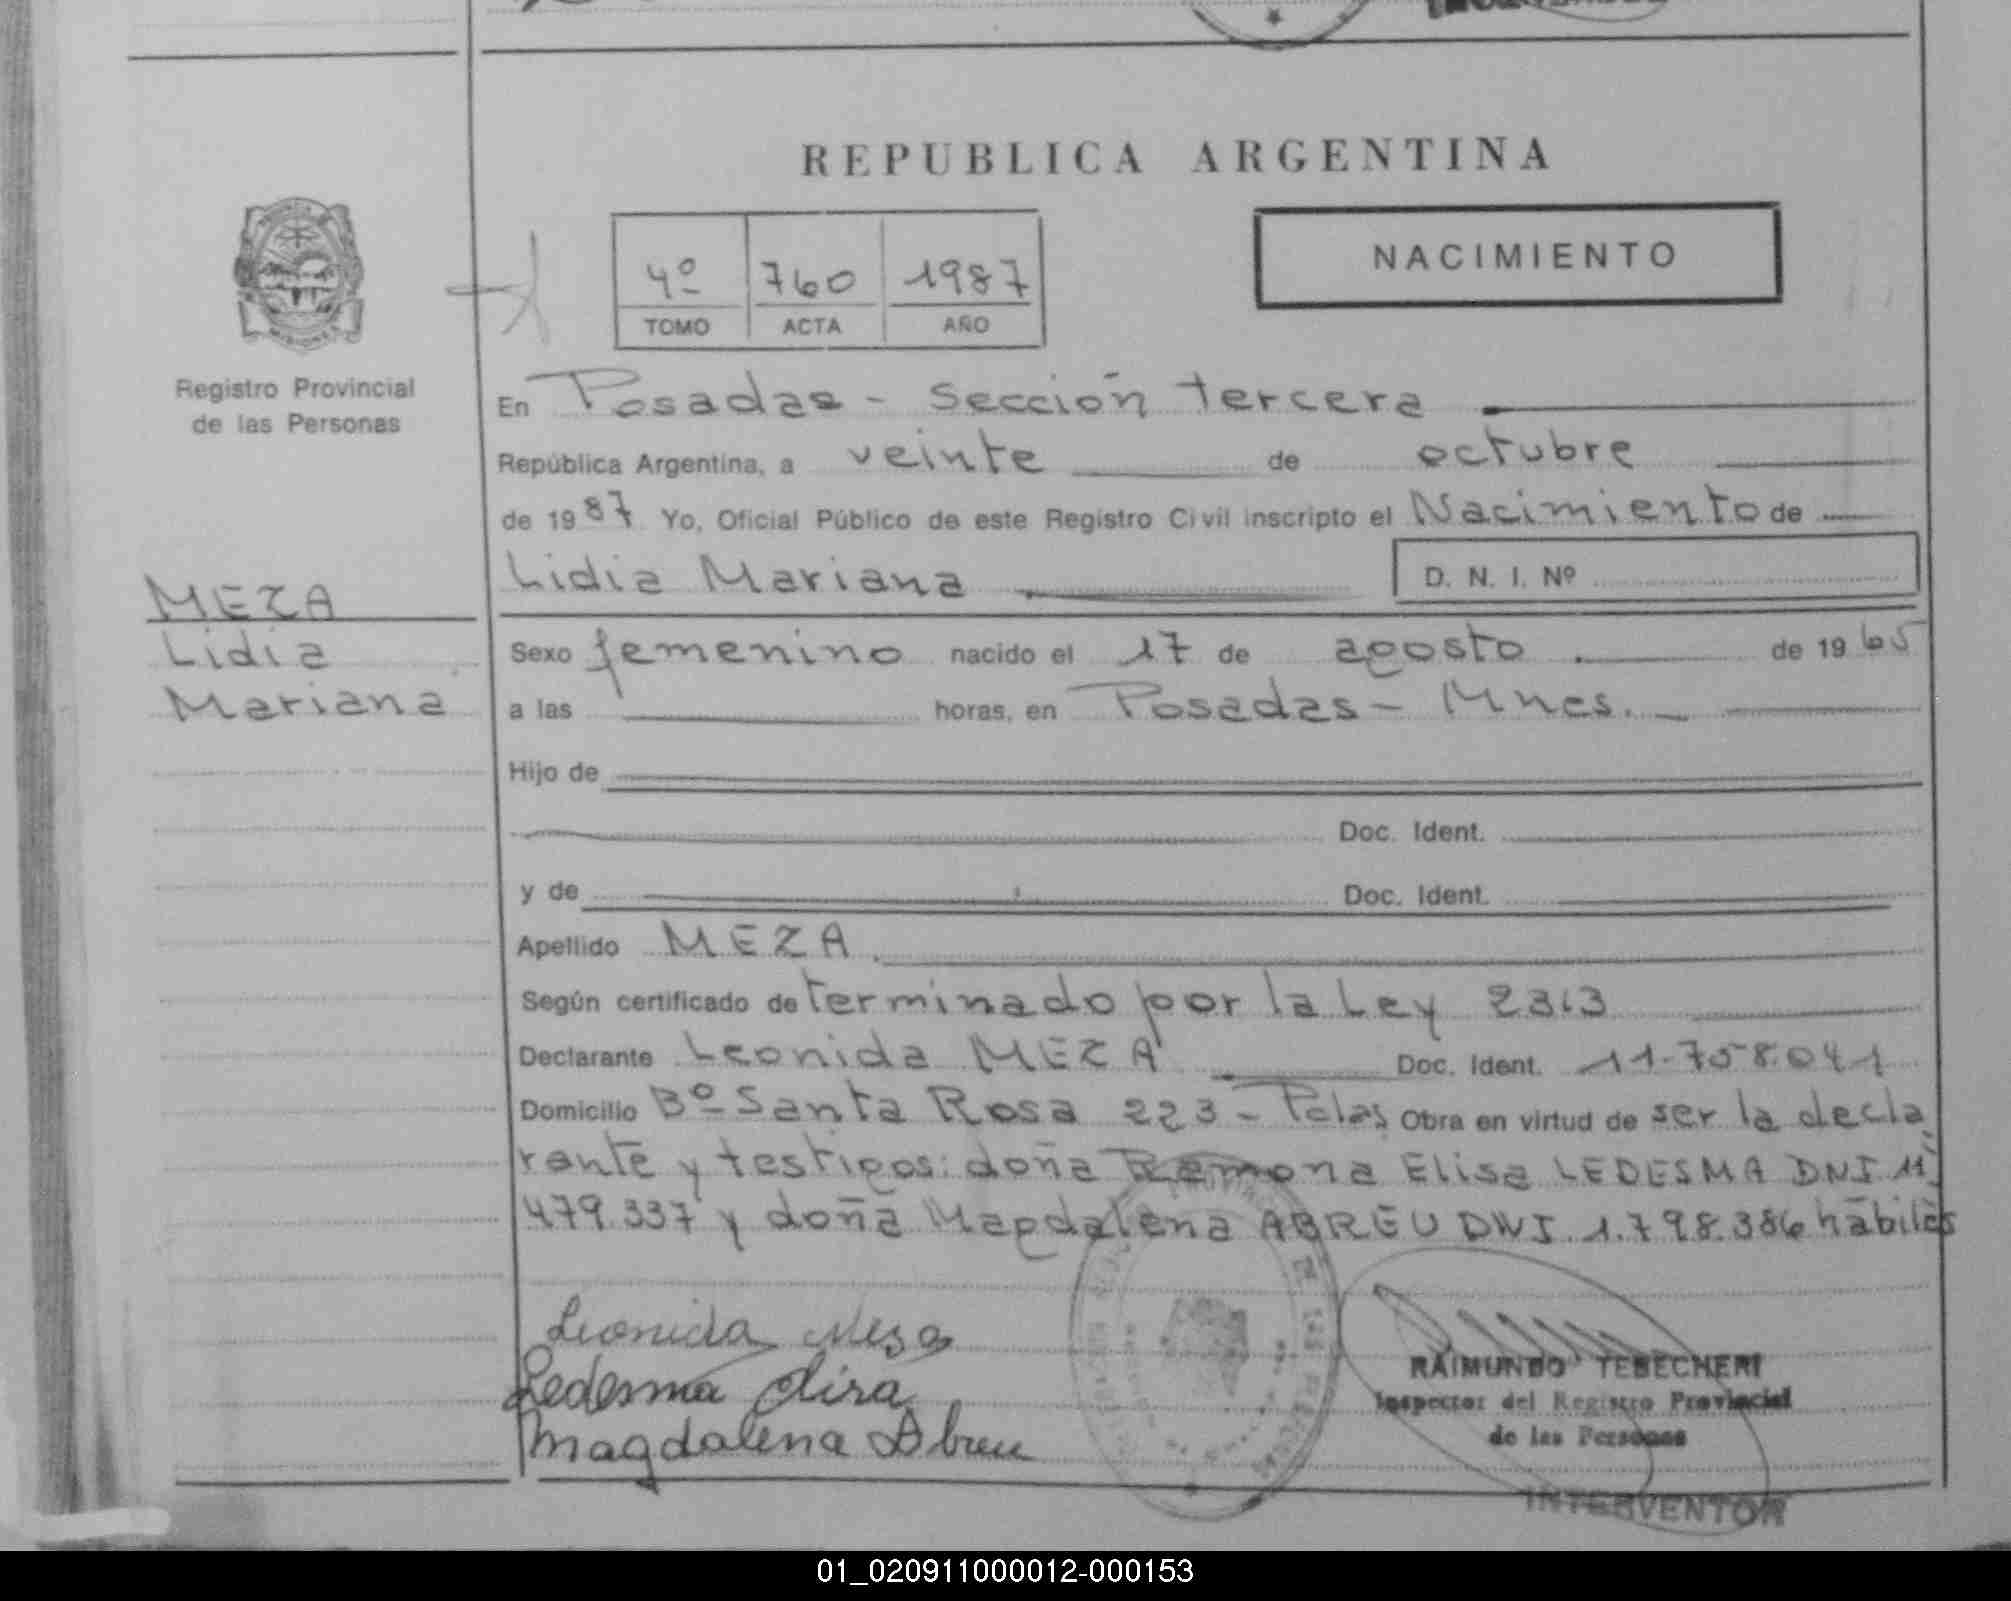 REPUBLICA ARGENTINA
NACIMIENTO
4º 760 1987
TOMO ACTA AÑO
Registro Provincial
de las Personas
En Posadas - Sección tercera
República Argentina, a veinte de octubre
de 1987 Yo, Oficial Público de este Registro Civil inscripto el Nacimiento de
Lidia Mariana D. N. I. Nº
MEZA
Lidia
Mariana
Sexo femenino nacido el 17 de agosto de 1965
a las horas, en Posadas - Mnes.
Hijo de
Doc. Ident.
y de Doc. Ident.
Apellido MEZA
Según certificado de terminado por la Ley 2313
Declarante Leonida MEZA Doc. Ident. 11.758.041
Domicilio Bº Santa Rosa 223 - Obra en virtud de ser la decla
rante y testigos: doña Ramona Elisa LEDESMA DNI 11.
479.337 y doña Magdalena ABREU DNI 1.798.386 hábiles
Leonida Mesa
Ledesma Elisa
Magdalena Abreu
RAIMUNDO TEBECHERI
Inspector del Registro Provincial
de las Personas
INTERVENTOR
01_020911000012-000153